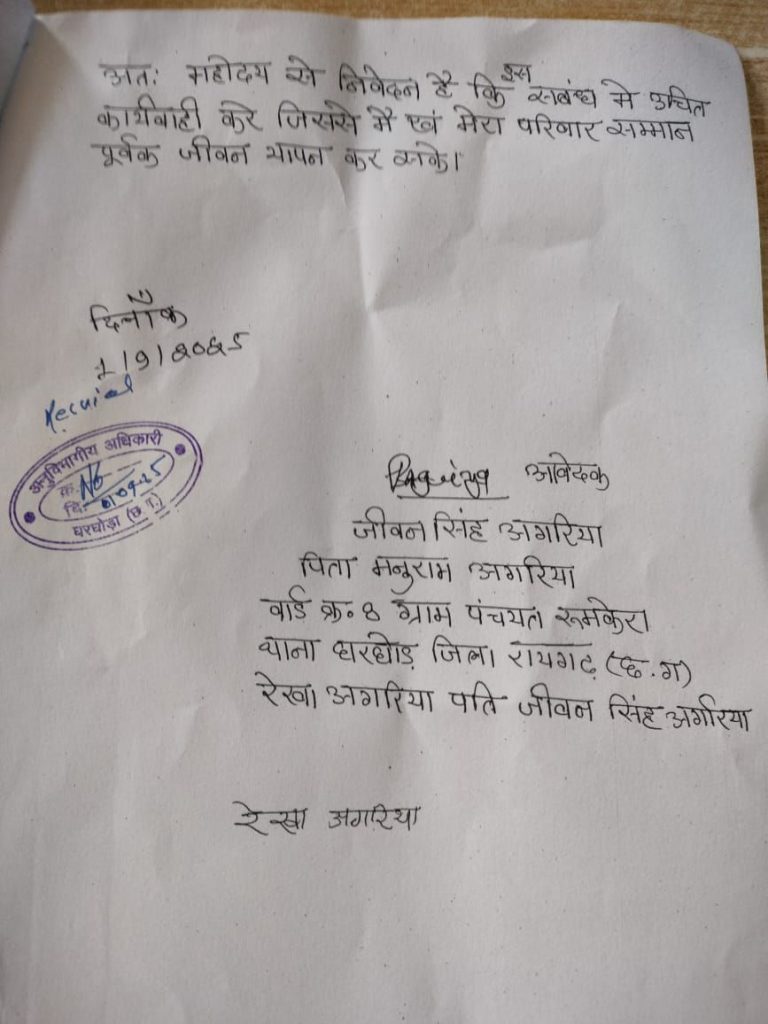 अतः महोदय से निवेदन है कि इस सबंध मे उचित
कार्यवाही करे जिससे मै एवं मेरा परिवार सम्मान
पूर्वक जीवन यापन कर सके।
दिनाँक
1/9/2025
अनुविभागीय अधिकारी
क्र.
दि. 01-09-25
घरघोड़ा (छ.ग.)
आवेदक
जीवन सिंह अगरिया
पिता मनुराम अगरिया
वार्ड क्र. 8 ग्राम पंचयत रूमकेरा
थाना घरघोड़ जिला रायगढ़ (छ.ग)
रेखा अगरिया पति जीवन सिंह अगरिया
रेखा अगरिया